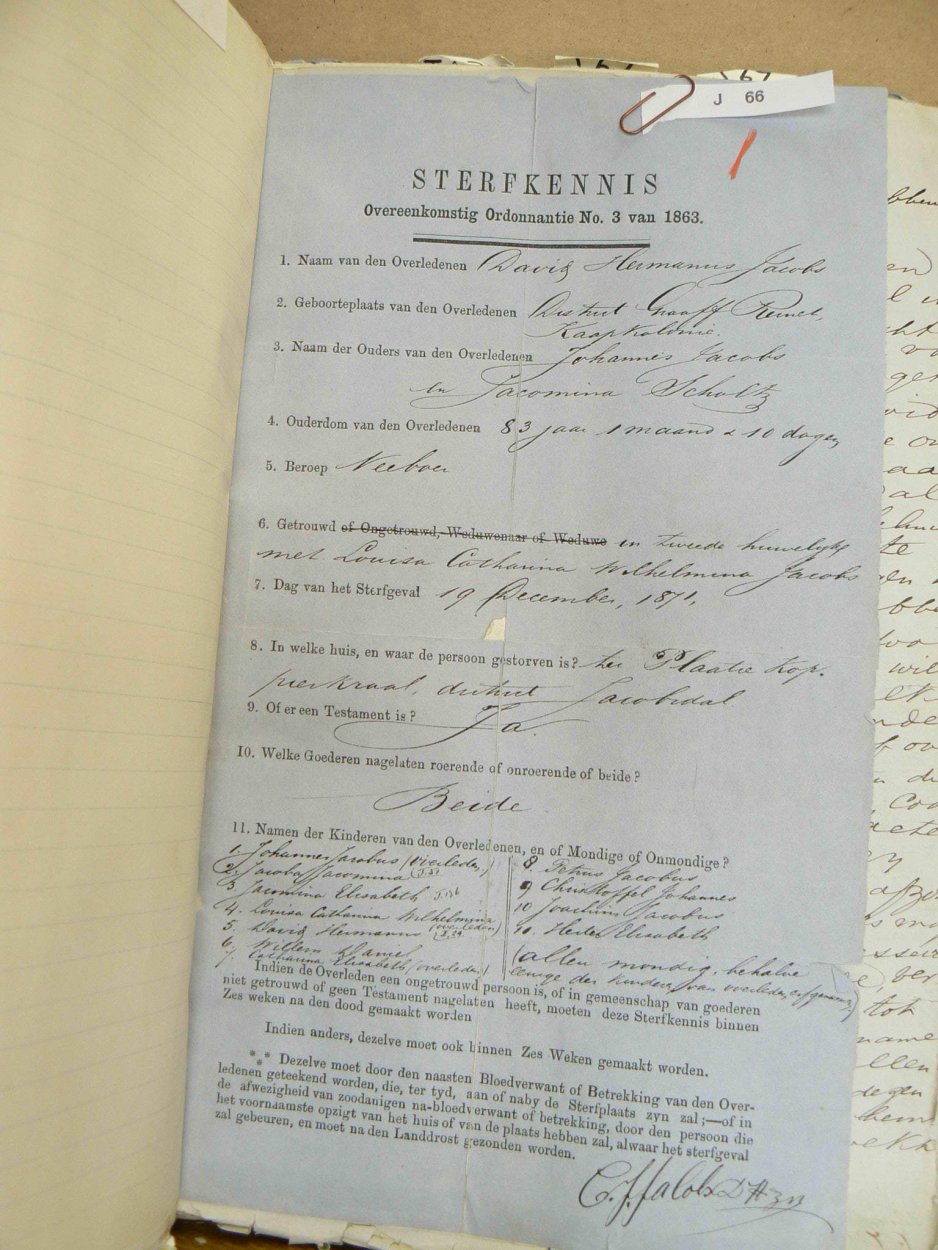 J 66
STERFKENNIS
Overeenkomstig Ordonnantie No. 3 van 1863.
1. Naam van den Overledenen David Hermanus Jacobs
2. Geboorteplaats van den Overledenen District Graaff Reinet,
Kaapkolonie.
3. Naam der Ouders van den Overledenen Johannes Jacobs
en Jacomina Scholtz
4. Ouderdom van den Overledenen 83 jaar 1 maand & 10 dagen
5. Beroep Veeboer
6. Getrouwd of Ongetrouwd, Weduwenaar of Weduwe in tweede huwelyk
met Louisa Catharina Wilhelmina Jacobs
7. Dag van het Sterfgeval 19 December, 1871,
8. In welke huis, en waar de persoon gestorven is? ter Plaatse Kop-
pieskraal, district Jacobsdal
9. Of er een Testament is? Ja.
10. Welke Goederen nagelaten roerende of onroerende of beide?
Beide
11. Namen der Kinderen van den Overledenen, en of Mondige of Onmondige?
1. Johannes Jacobus (overleden)
2. Jacoba Jacomina
3 Jacomina Elisabeth
4. Louisa Catharina Wilhelmina
(overleden)
5. David Hermanus
6. Willem Daniel
7. Catharina Elisabeth (overleden)
8. Petrus Jacobus
9 Christoffel Johannes
10 Joachim Jacobus
11. Hester Elisabeth
(allen mondig, behalve
eenige der kinders van overleden erfgenamen)
Indien de Overleden een ongetrouwd persoon is, of in gemeenschap van goederen
niet getrouwd of geen Testament nagelaten heeft, moeten deze Sterfkennis binnen
Zes weken na den dood gemaakt worden
Indien anders, dezelve moet ook binnen Zes Weken gemaakt worden.
*** Dezelve moet door den naasten Bloedverwant of Betrekking van den Over-
ledenen geteekend worden, die, ter tyd, aan of naby de Sterfplaats zyn zal;—of in
de afwezigheid van zoodanigen na-bloedverwant of betrekking, door den persoon die
het voornaamste opzigt van het huis of van de plaats hebben zal, alwaar het sterfgeval
zal gebeuren, en moet na den Landdrost gezonden worden.
C. J. Jacobs DHzn